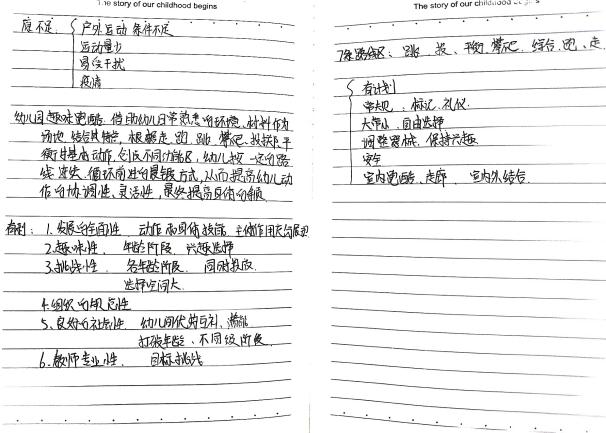 The story of our childhood begins
户外运动 条件不足
不足
运动量少
易受干扰
疫情
幼儿园趣味跑酷,借助幼儿日常熟悉的环境、材料作为
场地,结合其特征,根据走、跑、跳、攀爬、投掷、平
衡等基本动作,创设不同功能区,幼儿按一定的路
线连续、循环前进的锻炼方式,从而提高幼儿动
作的协调性、灵活性,最终提高身体的
1.发展的全面性 动作和身体技能
2.趣味性 年龄阶段 兴趣选择
3.挑战性 各年龄阶段
选择空间大
4.组织的规范性
5.良好的社会性
打破年龄、不同级阶段
6.教师专业性 目标挑战
The story of our childhood begins
跳 投、平衡、攀爬、综合、跑、走
有计划
常规、标记、礼仪
自由选择
调整器械、保持兴趣
安全
室内跑酷、走廊、室内外结合